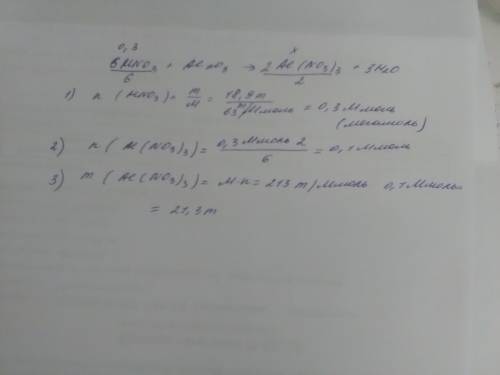 0,3 x
6HNO3 + Al2O3 → 2Al(NO3)3 + 3H2O
6 2
1) n (HNO3) = m/M = 18,9т / 63 т/Ммоль = 0,3 Ммоль
(мегамоль)
2) n (Al(NO3)3) = 0,3 Ммоль 2 / 6 = 0,1 Ммоль
3) m (Al(NO3)3) = M·n = 213 т/Ммоль 0,1 Ммоль
= 21,3 т